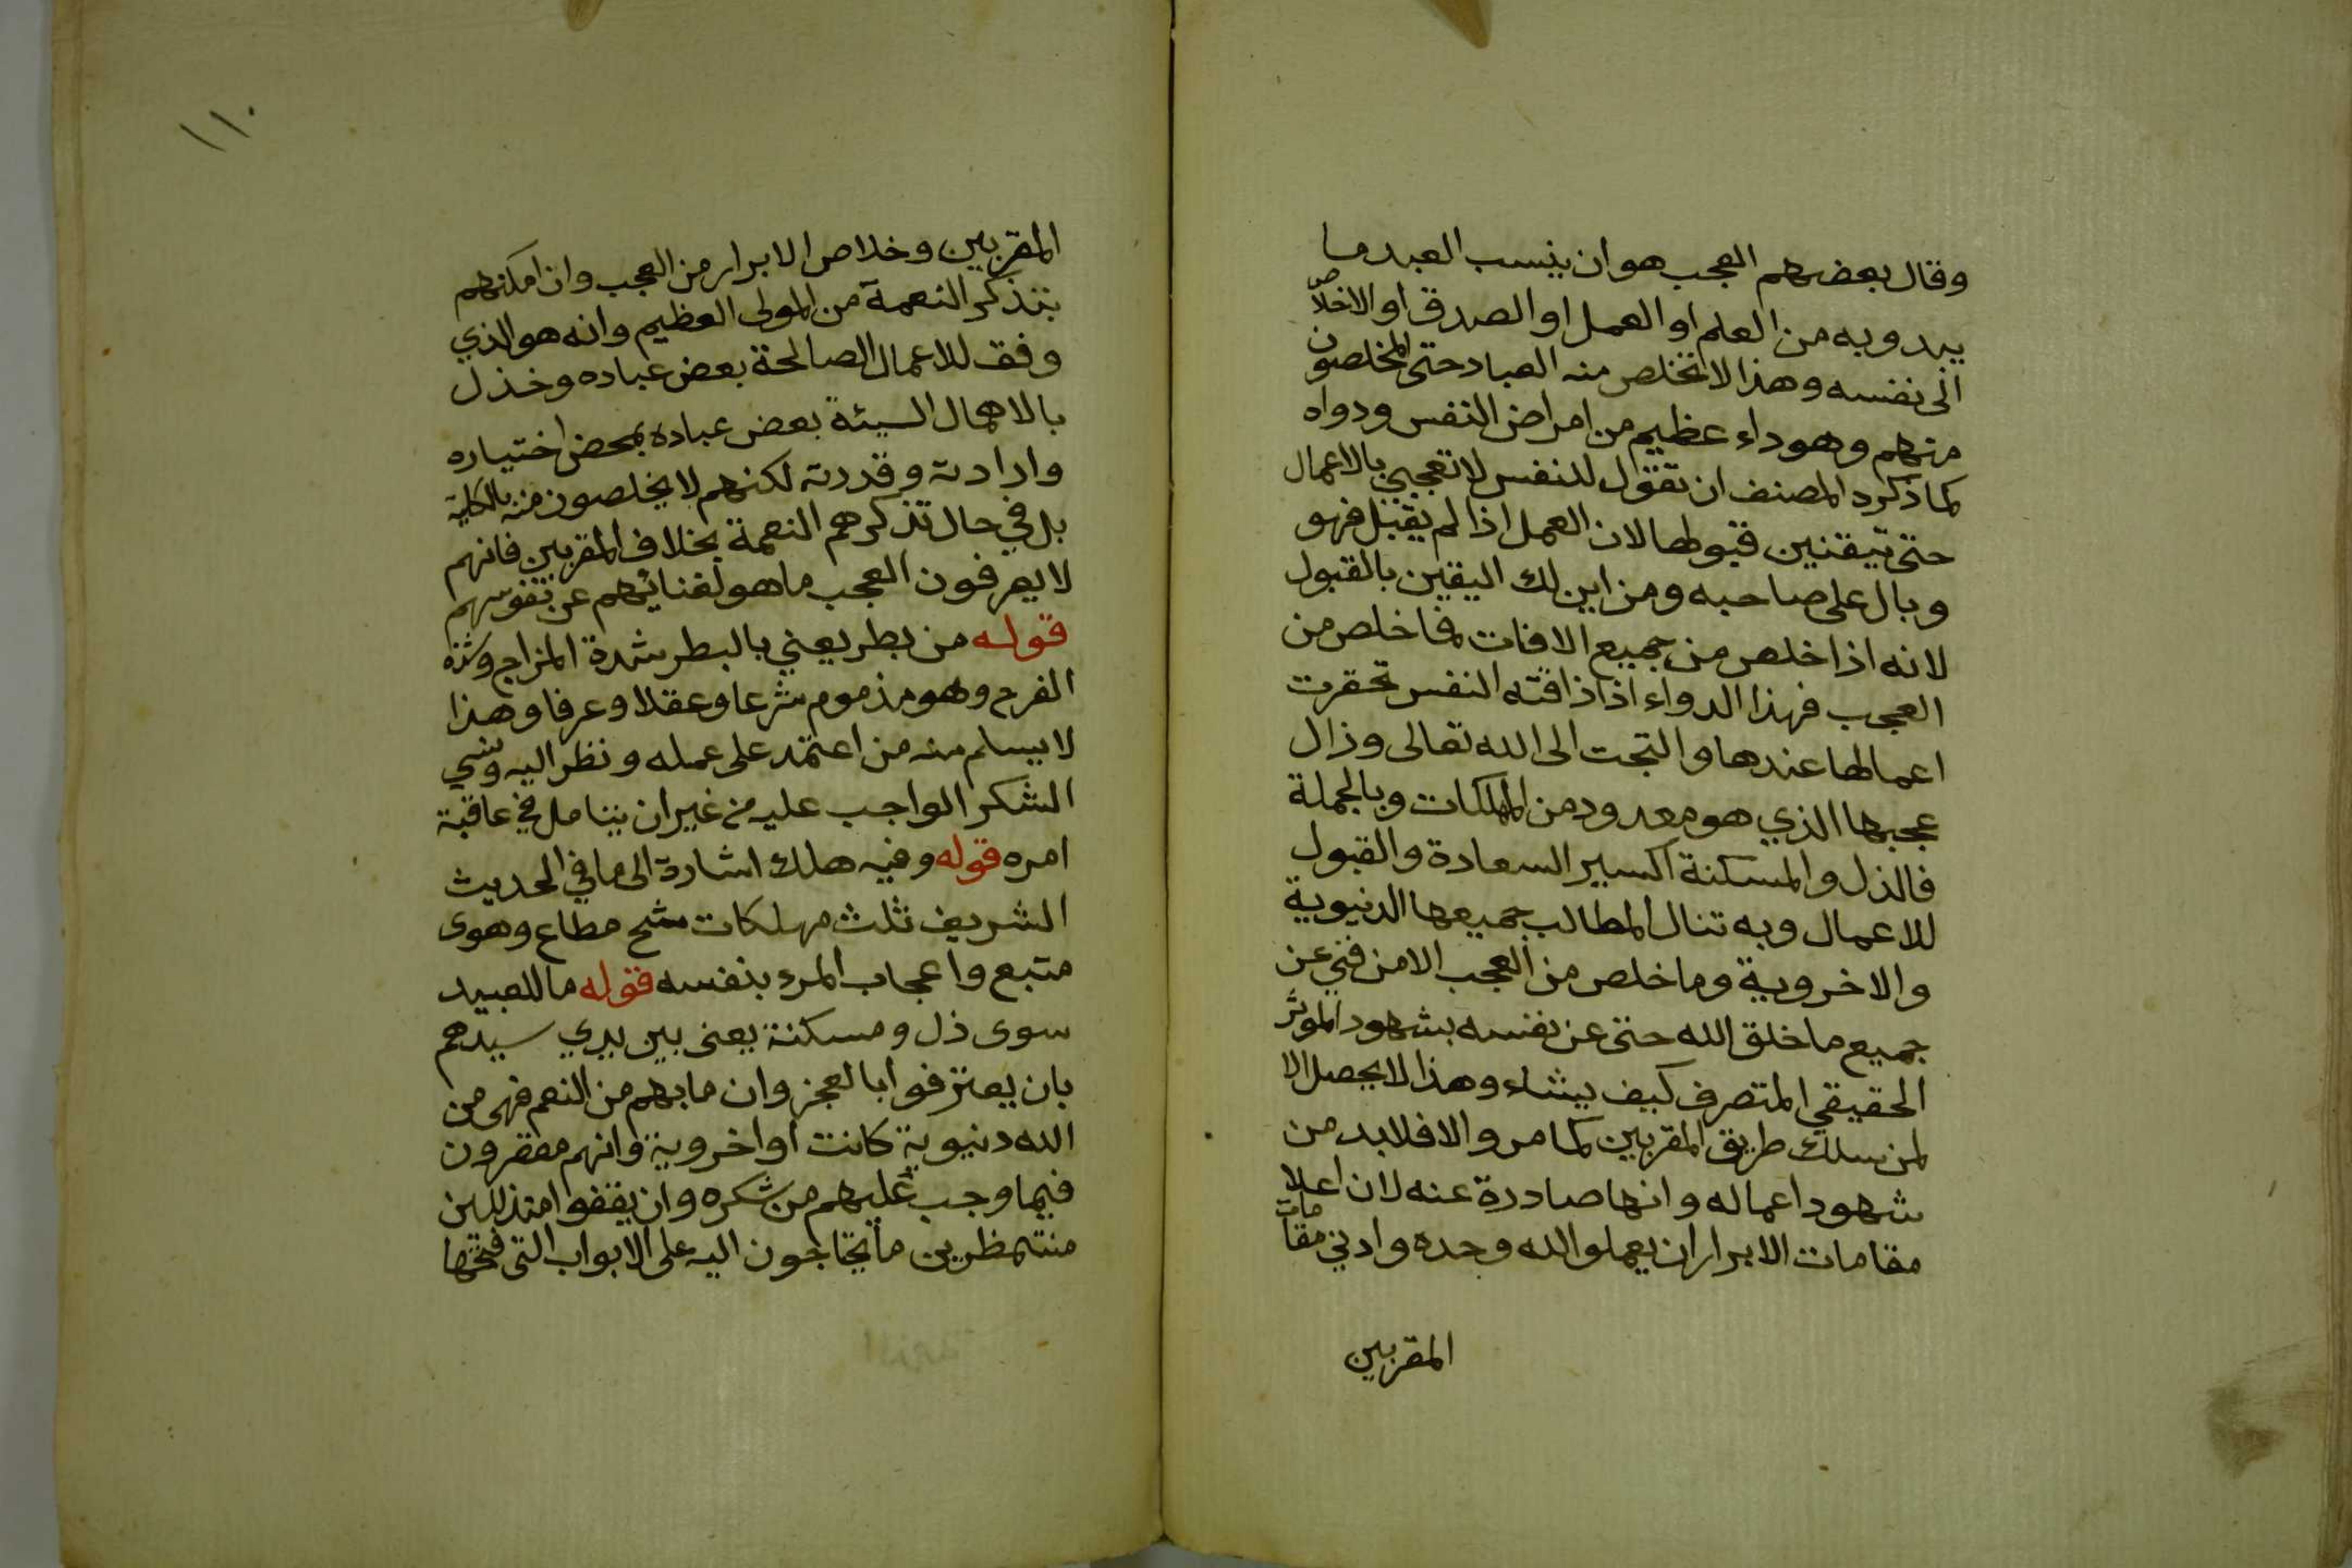 وقال بعضهم العجب هو ان ينسب العبد ما
يبدو به من العلم او العمل او الصدق او الاخلاص
الى نفسه وهذا لا تخلص منه العباد حتى المخلصون
منهم وهو داء عظيم من امراض النفس ودواه
كما ذكره المصنف ان تقول للنفس لا تعجبي بالاعمال
حتى تتيقنين قبولها لان العمل اذا لم يقبل فهو
وبال على صاحبه ومن اين لك اليقين بالقبول
لانه اذا خلص من جميع الافات فما خلص من
العجب فهذا الدواء اذا ذاقته النفس تحقرت
اعمالها عندها والتجت الى الله تعالى وزال
عجبها الذي هو معدود من المهلكات وبالجملة
فالذل والمسكنة اكسير السعادة والقبول
للاعمال وبه تنال المطالب جميعها الدنيوية
والاخروية وما خلص من العجب الا من فني عن
جميع ما خلق الله حتى عن نفسه بشهود الموثر
الحقيقي المتصرف كيف يشاء وهذا لا يحصل الا
لمن سلك طريق المقربين كما مر والا فلابد من
شهود اعماله وانها صادرة عنه لان اعلا
مقامات الابرار ان يعملوا لله وحده وادني مقامات
المقربين
١١٠
المقربين وخلاص الابرار من العجب وان امكنهم
بتذكر النعمة من المولى العظيم وانه هو الذي
وفق للاعمال الصالحة بعض عباده وخذل
بالاهمال السيئة بعض عباده بمحض اختياره
وارادته وقدرته لكنهم لا يخلصون منه بالكلية
بل في حال تذكرهم النعمة بخلاف المقربين فانهم
لا يعرفون العجب ما هو لفنائهم عن نفوسهم
قوله من بطر يعني بالبطر شدة المزاح وشدة
الفرح وهو مذموم شرعا وعقلا وعرفا وهذا
لا يسلم منه من اعتمد على عمله ونظر اليه ونسي
الشكر الواجب عليه من غير ان يتامل في عاقبة
امره قوله وفيه هلك اشارة الى ما في الحديث
الشريف ثلث مهلكات شح مطاع وهوى
متبع واعجاب المرء بنفسه قوله ما للعبيد
سوى ذل ومسكنة يعنى بين يدي سيدهم
بان يعترفوا بالعجز وان ما بهم من النعم فهى من
الله دنيوية كانت او اخروية وانهم مقصرون
فيما وجب عليهم من شكره وان يقفوا متذللين
منتظرين ما يحتاجون اليه على الابواب التى فتحها